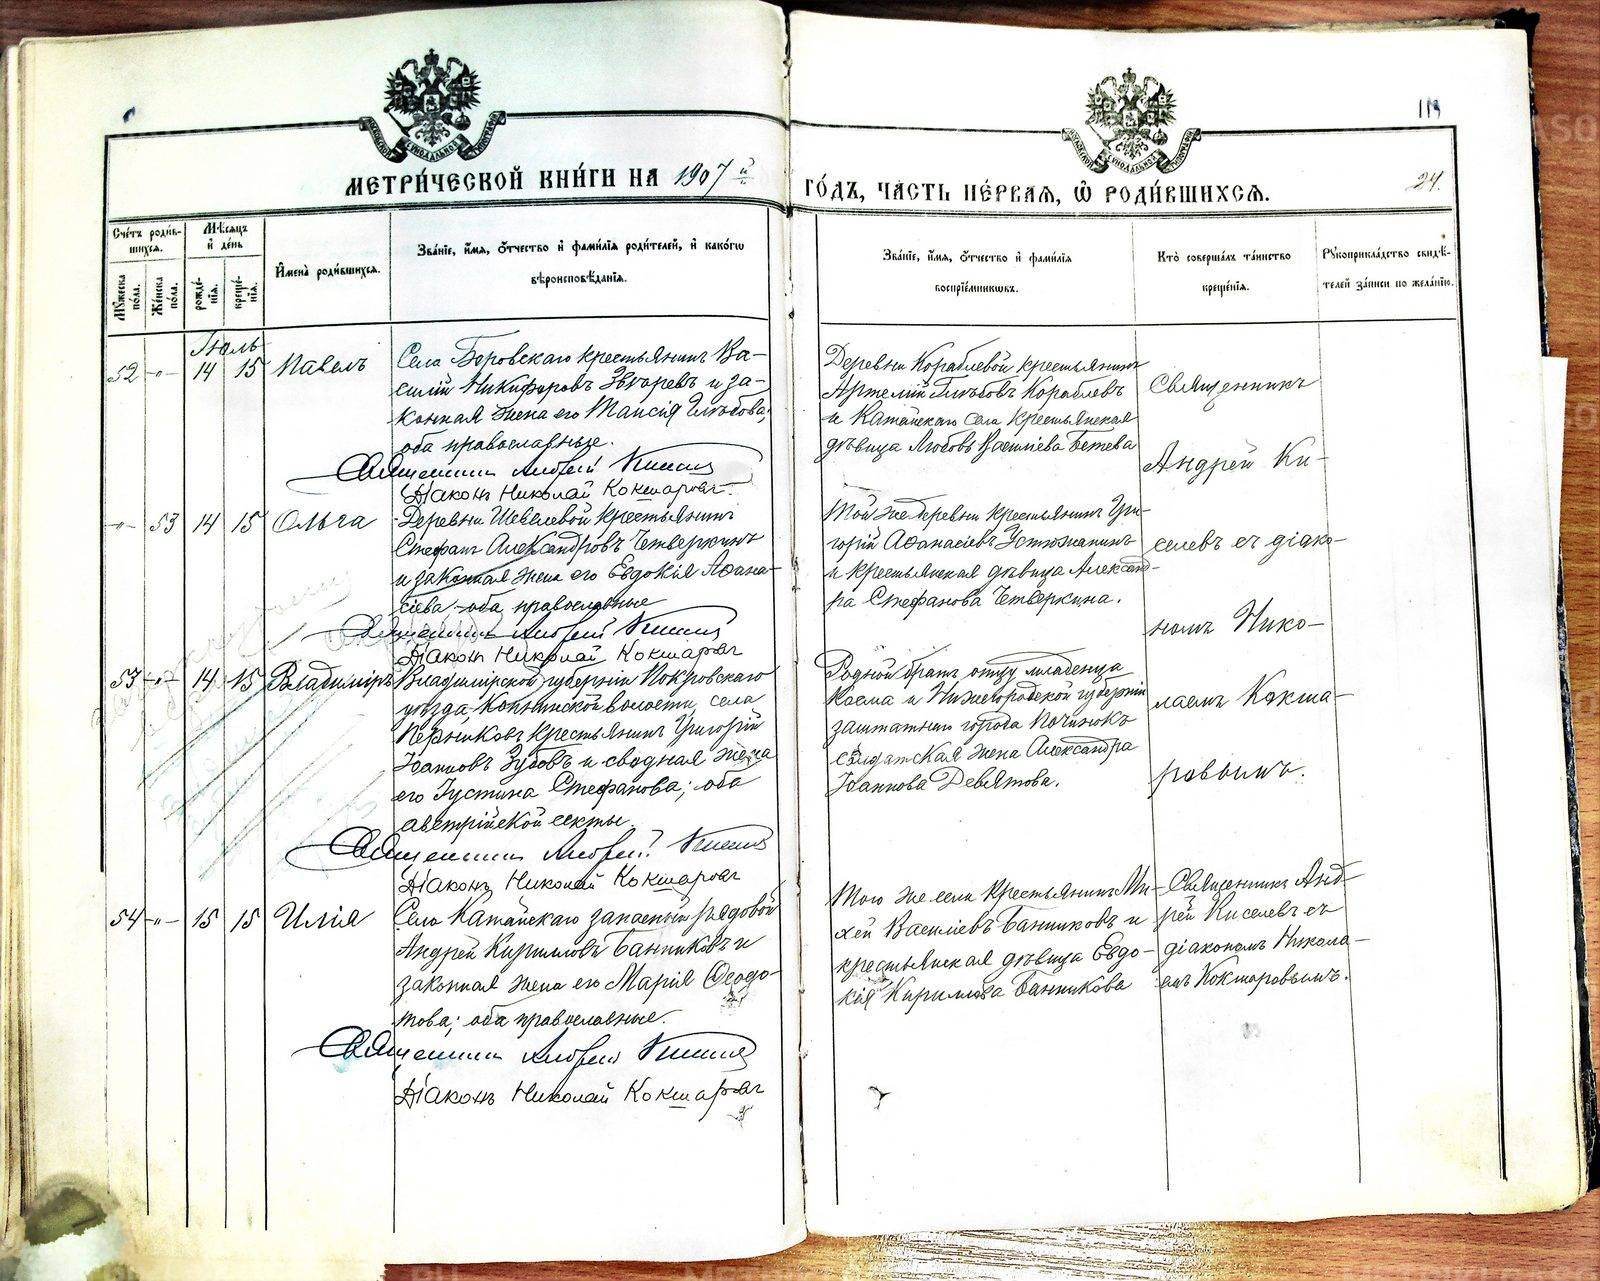 119
24.
МЕТРИ́ЧЕСКОЙ КНИ́ГИ НА 1907й ГО́ДЪ, ЧА́СТЬ ПЕ́РВАЯ, Ѡ РОДИ́ВШИХСЯ.
Сче́тъ роди́в-
шихся.
Мꙋжеска по́ла.
Же́нска по́ла.
Мѣ́сяцъ
и҆ де́нь
рожде́-
нїя.
креще́-
нїя.
И҆мена̀ роди́вшихся.
Зва́нїе, и҆́мя, ѻ҆́тчество и҆ фами́лїя роди́телей, и҆ како́гѡ
вѣроисповѣ́данїя.
Зва́нїе, и҆́мя, ѻ҆́тчество и҆ фами́лїя
воспрїе́мникѡвъ.
Кто̀ соверша́лъ та́инство
креще́нїя.
Рꙋкоприкла́дство свидѣ́-
телей за́писи по жела́нїю.
Іюль
52 -"- 14 15 Павелъ
Села Боровскаго крестьянинъ Ва-
силій Никифоровъ Звѣревъ и за-
конная жена его Таисія Глѣбова;
оба православные.
Священникъ Андрей Киселевъ
Діаконъ Николай Кокшаровъ.
Деревни Кораблевой крестьянинъ
Артемій Глѣбовъ Кораблевъ
и Катайскаго села крестьянская
дѣвица Любовь Васильева Бетева
-"- 53 14 15 Ольга
Деревни Шевелевой крестьянинъ
Стефанъ Александровъ Четверкинъ
и законная жена его Евдокія Аѳана-
сіева; оба православные
Священникъ Андрей Киселевъ
Діаконъ Николай Кокшаровъ
Той же деревни крестьянинъ Гри-
горій Аѳанасіевъ Устюжанинъ
и крестьянская дѣвица Александ-
ра Стефанова Четверкина.
53 -"- 14 15 Владиміръ
Владимірской губерніи Покровскаго
уѣзда Копнинской волости, села
Перниковъ крестьянинъ Григорій
Іоанновъ Зубовъ и сводная жена
его Іустина Стефанова; оба
австрійской секты.
Священникъ Андрей Киселевъ
Діаконъ Николай Кокшаровъ
Родной братъ отцу младенца
Косма и Нижегородской губерніи
заштатнаго города Починокъ
солдатская жена Александра
Іоаннова Девятова.
Священникъ
Андрей Ки-
селевъ съ діако-
номъ Нико-
лаемъ Кокша-
ровымъ.
54 -"- 15 15 Илія
Села Катайскаго запасный рядовой
Андрей Кирилловъ Банниковъ и
законная жена его Марія Ѳеодо-
това; оба православные.
Священникъ Андрей Киселевъ
Діаконъ Николай Кокшаровъ
Того же села крестьянинъ Ми-
хей Василіевъ Банниковъ и
крестьянская дѣвица Евдо-
кія Кириллова Банникова
Священникъ Анд-
рей Киселевъ съ
діакономъ Никола-
емъ Кокшаровымъ.